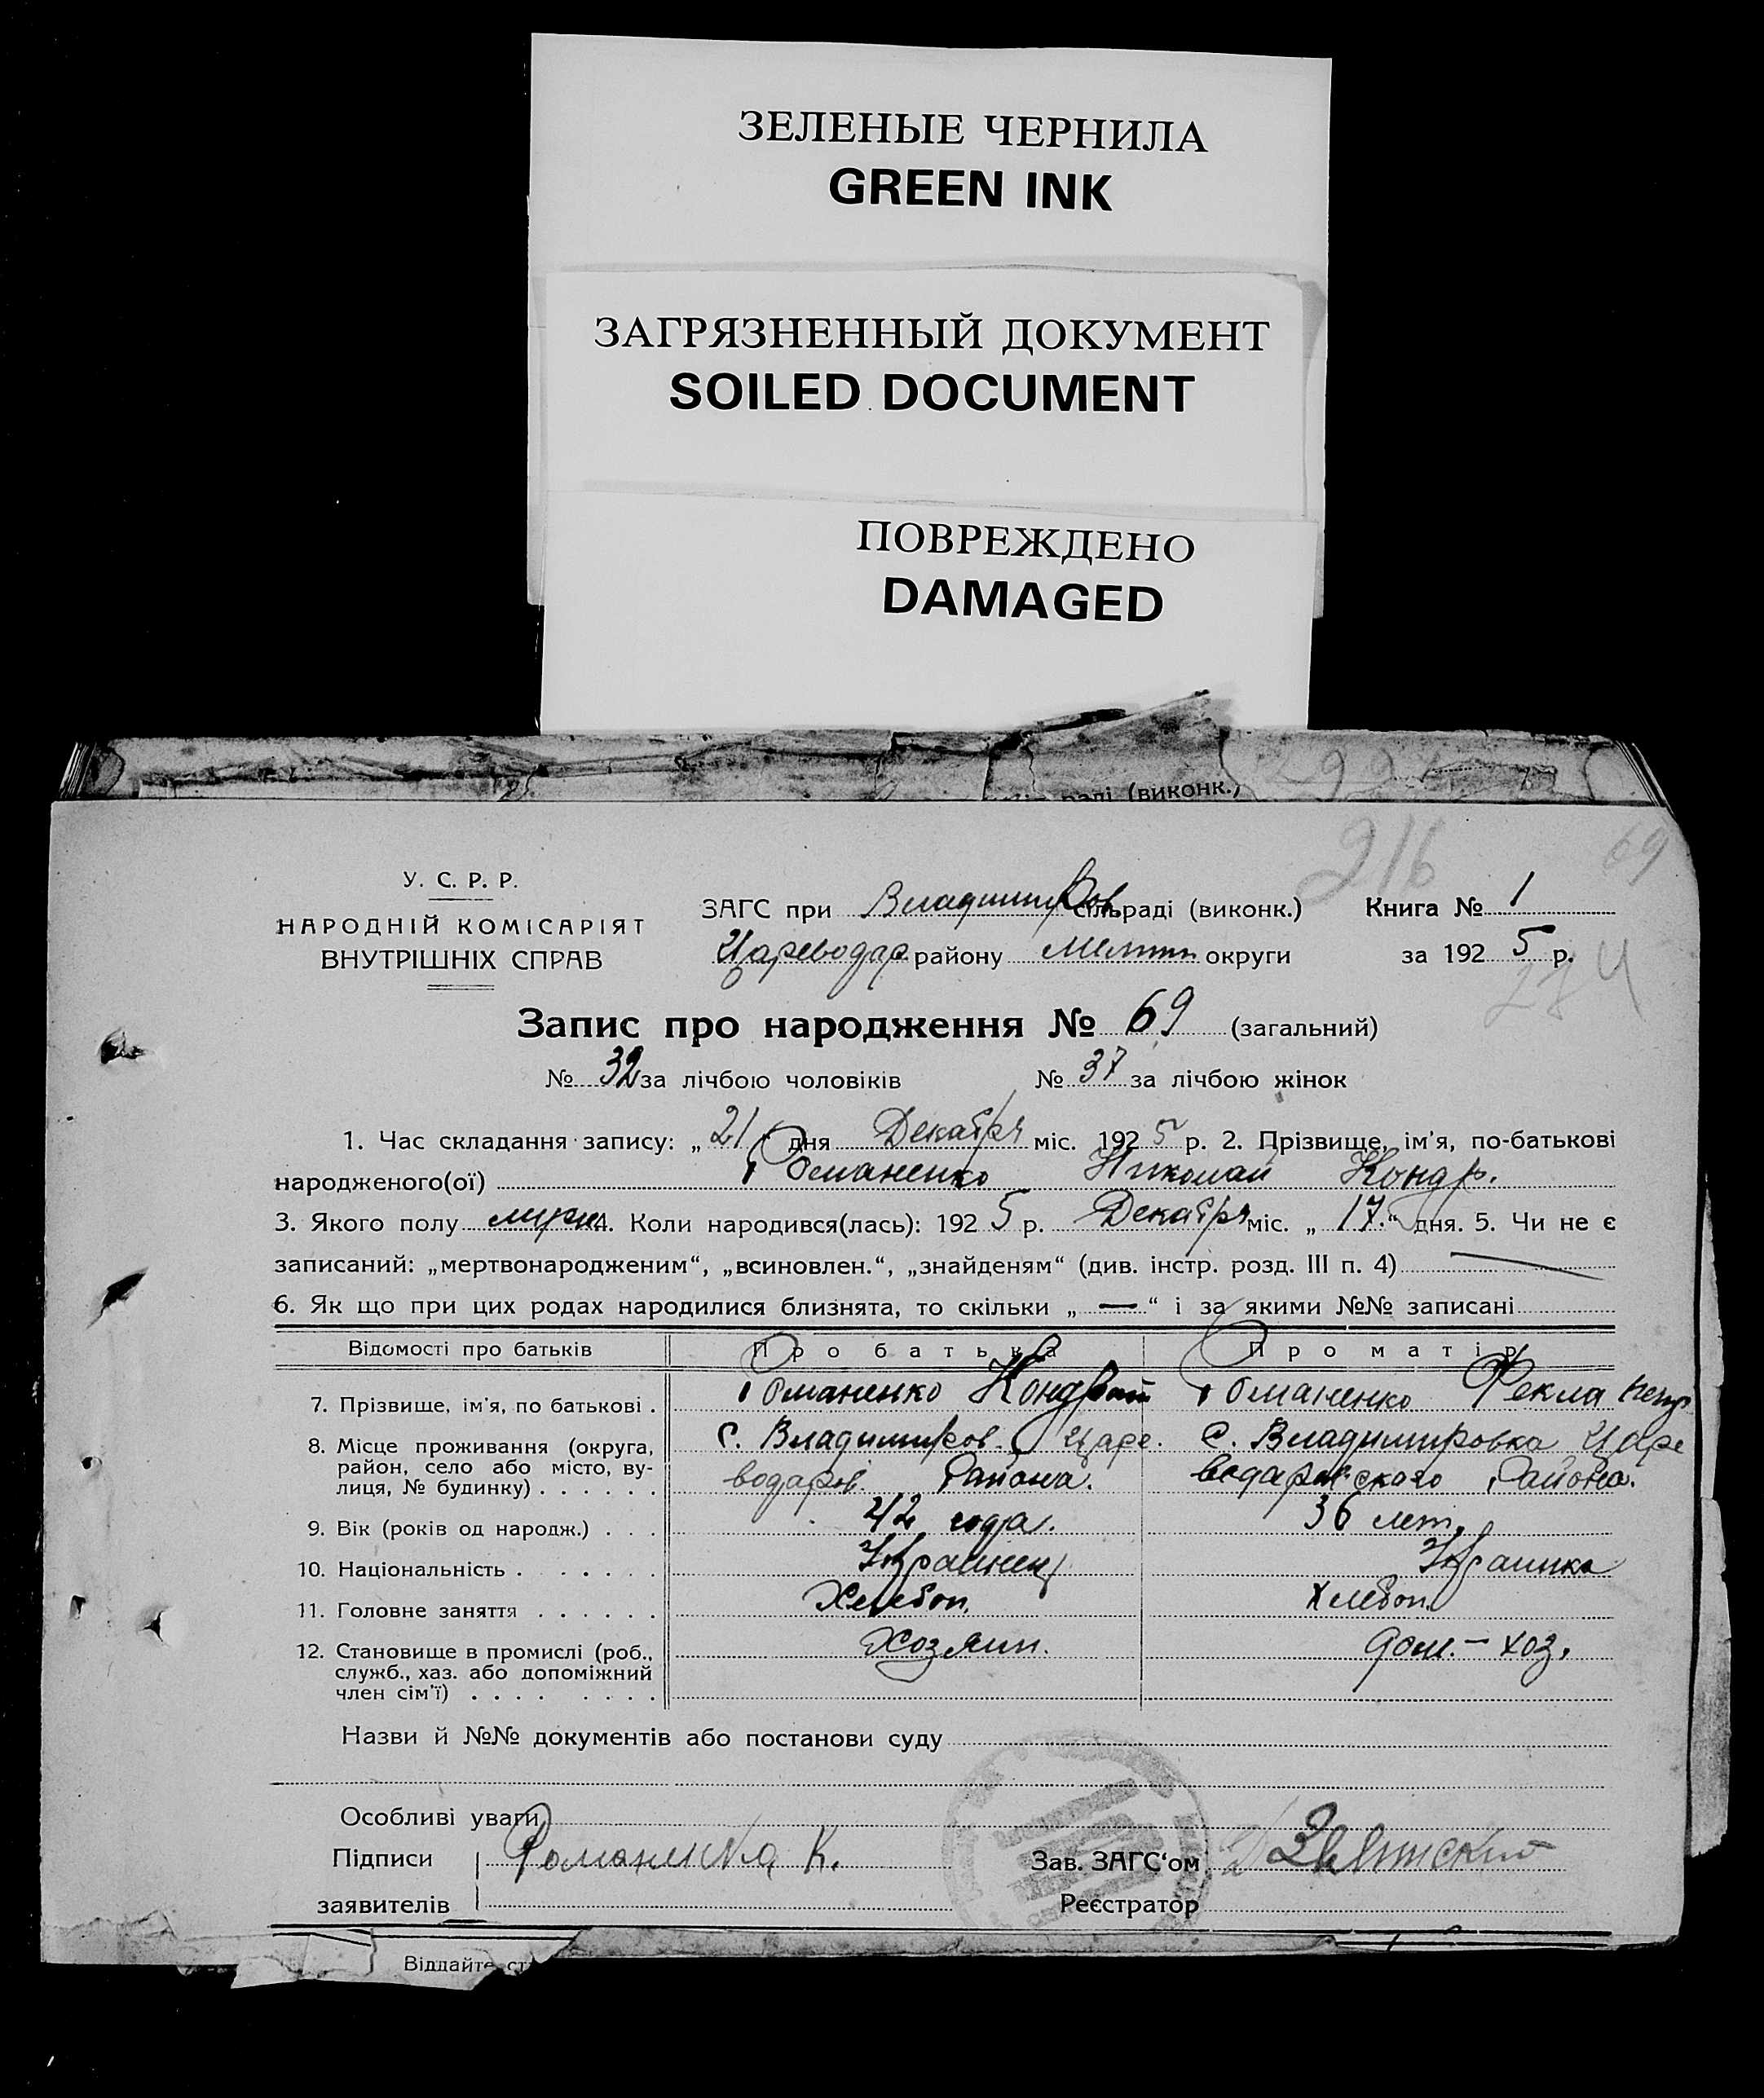 ЗЕЛЕНЫЕ ЧЕРНИЛА
GREEN INK
ЗАГРЯЗНЕННЫЙ ДОКУМЕНТ
SOILED DOCUMENT
ПОВРЕЖДЕНО
DAMAGED
раді (виконк.)
216 69
У. С. Р. Р.
НАРОДНІЙ КОМІСАРІЯТ
ВНУТРІШНІХ СПРАВ
ЗАГС при Владимиров сільраді (виконк.) Книга № 1
Цареводар району Мелит округи за 1925 р.
274
Запис про народження № 69 (загальний)
№ 32 за лічбою чоловіків № 37 за лічбою жінок
1. Час складання запису: „21“ дня Декабря міс. 1925 р. 2. Прізвище, ім'я, по-батькові
народженого(ої) Романенко Николай Кондр.
3. Якого полу мужс 4. Коли народився(лась): 1925 р. Декабря міс. „17.“ дня. 5. Чи не є
записаний: „мертвонародженим“, „всиновлен.“, „знайденям“ (див. інстр. розд. III п. 4)
6. Як що при цих родах народилися близнята, то скільки „—“ і за якими №№ записані
Відомості про батьків Про батька Про матір
7. Прізвище, ім'я, по батькові . Романенко Кондрат Романенко Фекла
8. Місце проживання (округа, с. Владимиров. Царе. с. Владимировка Царе
район, село або місто, ву- водаров. Района. водаровского Района.
лиця, № будинку) . . . . . .
9. Вік (років од народж.) . . . 42 года. 36 лет.
10. Національність . . . . . . Украинец Украинка
11. Головне заняття . . . . . . Хлебоп. Хлебоп.
12. Становище в промислі (роб., Хозяин. дом.-хоз.
служб., хаз. або допоміжний
член сім'ї) . . . . . . . .
Назви й №№ документів або постанови суду
Особливі уваги
Підписи Романенко К. Зав. ЗАГС‘ом
заявителів Реєстратор
Віддайте ст